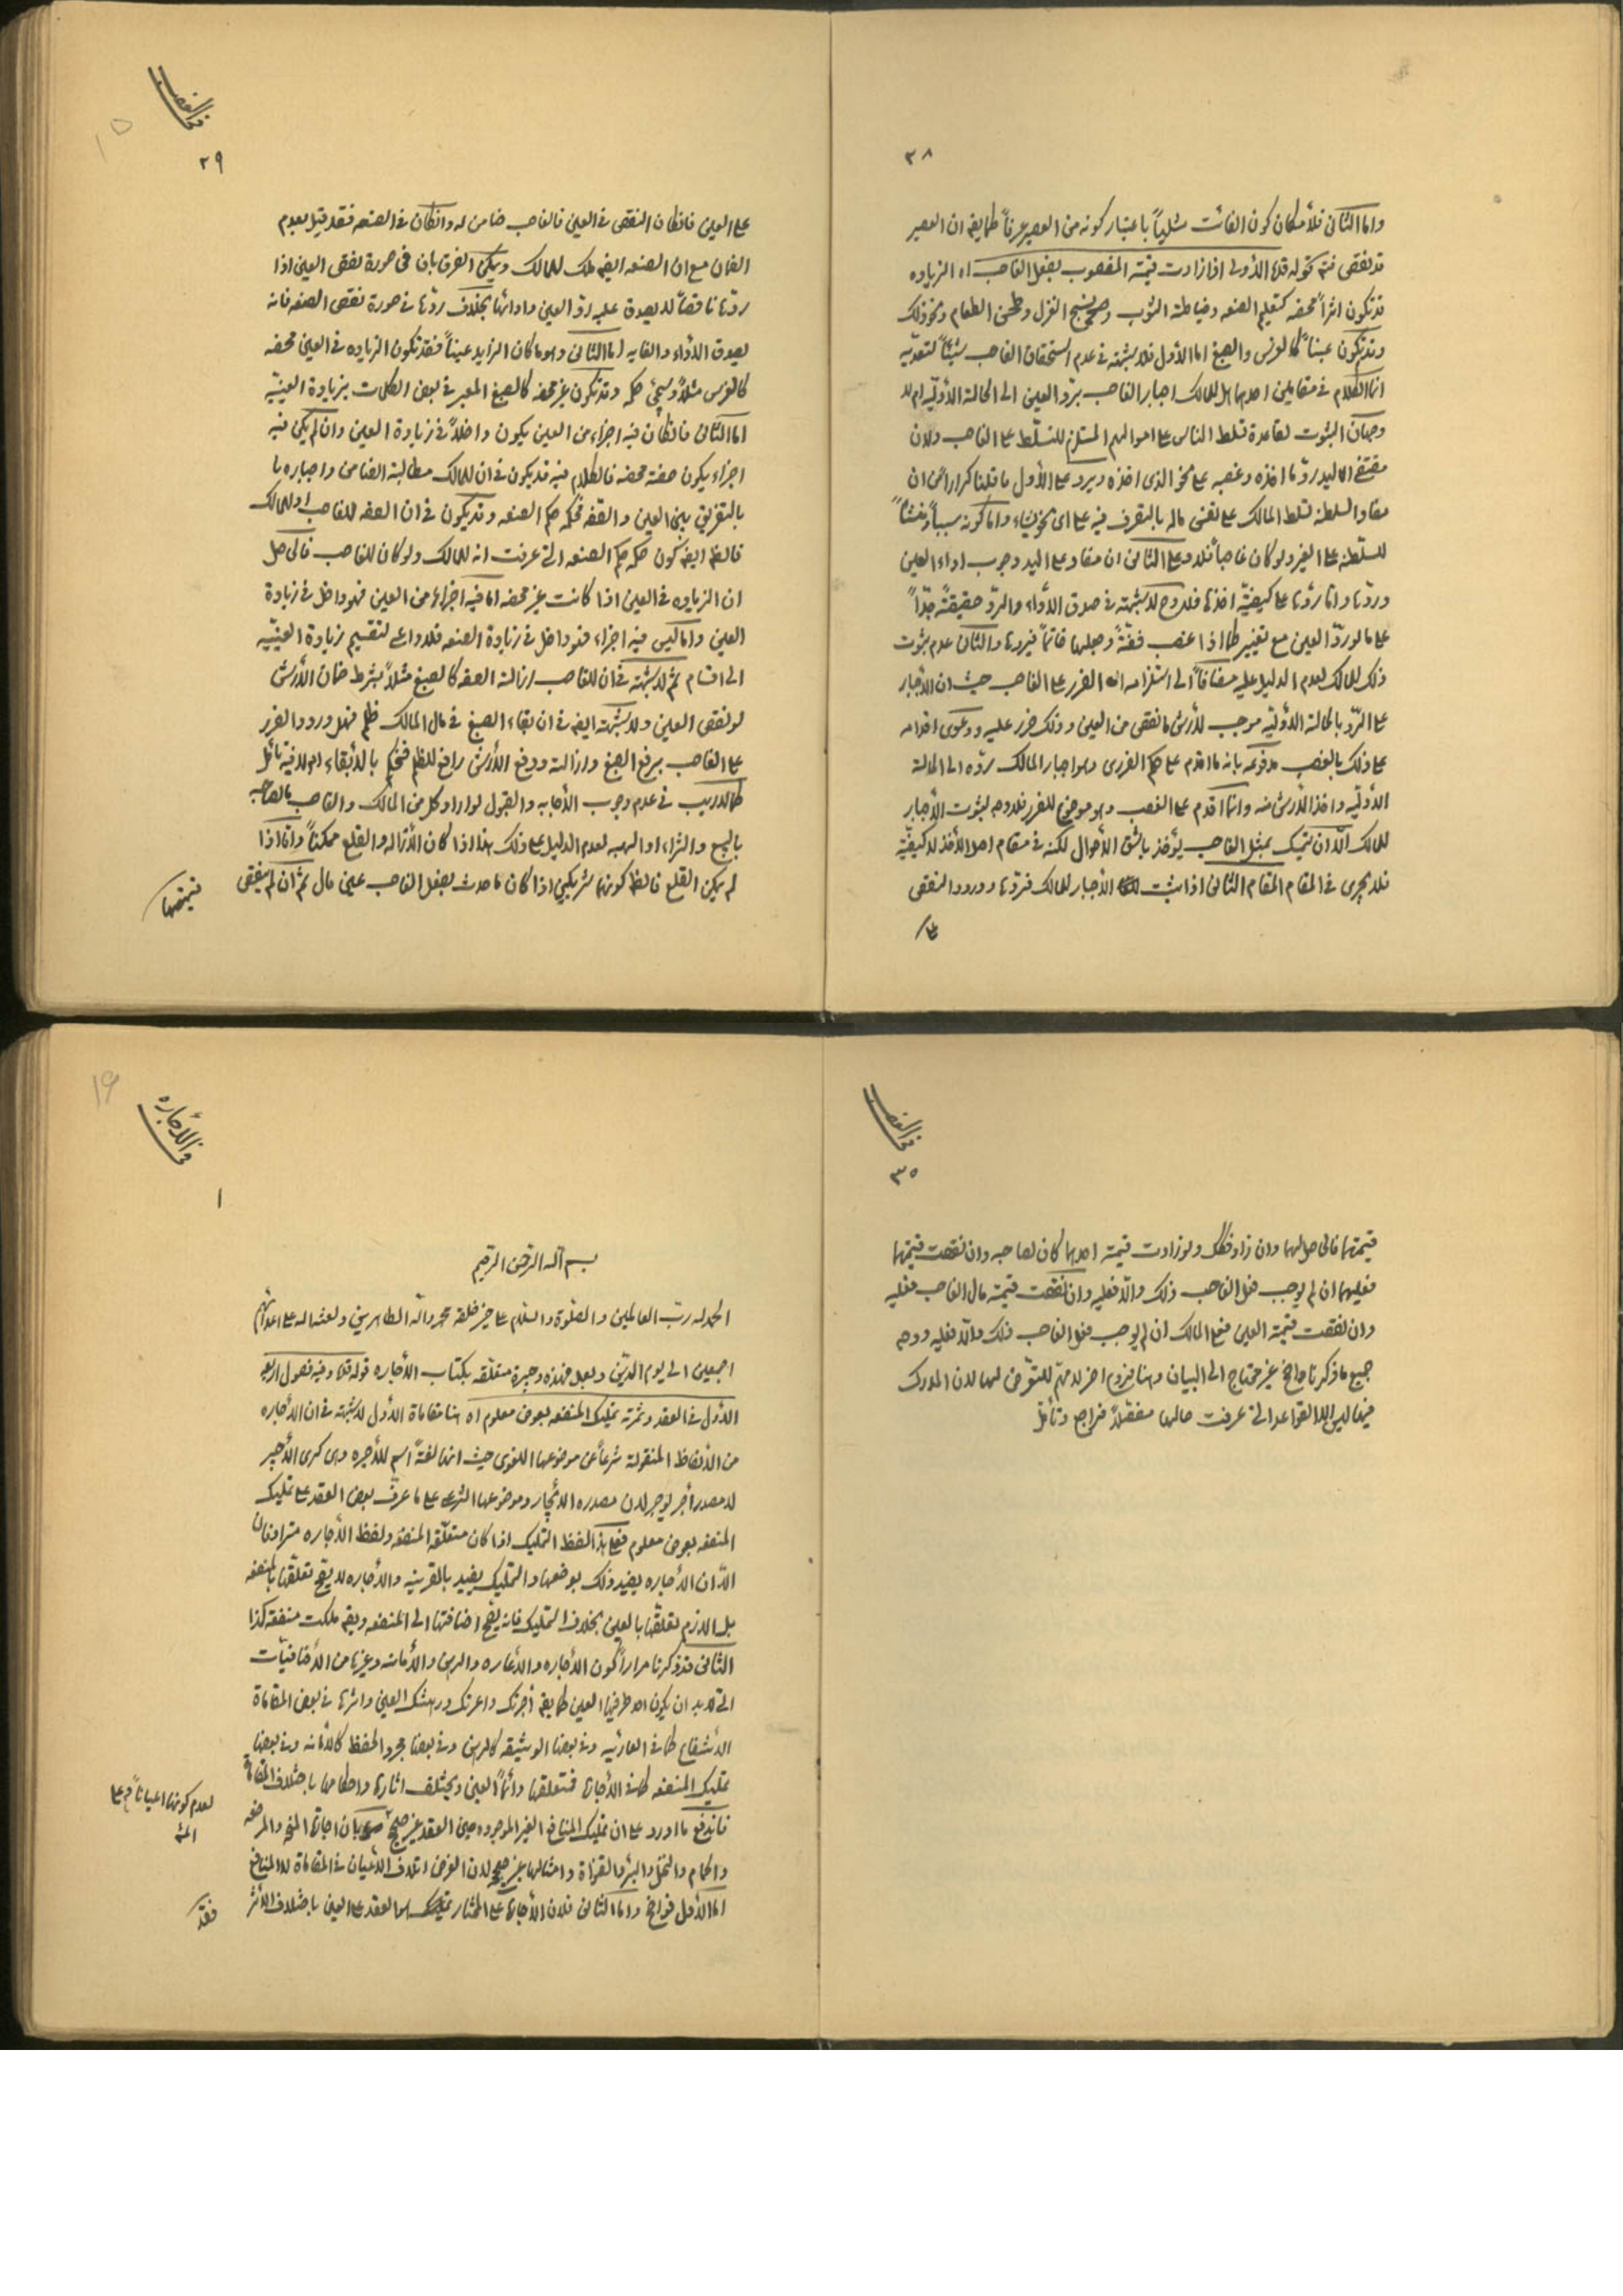 ٢٨
واما الثانى فلأمكان كون الفائت مثلياً باعتبار كونه من العصير عرفاً كما يقه ان العصير
قد نقص فتم قوله قده الأولى اذا زادت قيمة المغصوب بفعل الغاصب اه الزياده
قد تكون اثراً محضه كتعليم الصنعه وخياطة الثوب ونسج الغزل وطحن الطعام ونحو ذلك
وقد تكون عيناً كالغرس والصبغ اما الأول فلا شبهة فى عدم استحقاق الغاصب شيئاً لتعديه
انما الكلام فى مقامين احدهما هل للمالك اجبار الغاصب برد العين الى الحالة الأولية ام لا
وجهان الثبوت لقاعدة تسلط الناس على اموالهم المستلزم للتسلط على الغاصب ولان
مقتضى اليد رد ما اخذه وغصبه على نحو الذى اخذه ويرد على الأول ما قلنا كراراً من ان
مفاد السلطنة تسلط المالك على نفس ماله بالتصرف فيه على اى نحو يشاء واما كونه سبباً ومنشأً
للسلطنه على الغير ولو كان غاصباً فلا وعلى الثانى ان مفاد على اليد وجوب اداء العين
وردها واما ردها على كيفية اخذها فلا وح لا شبهة فى صدق الأداء والرد حقيقةً جداً
على ما لو رد العين مع تغيير كما اذا غصب فضةً وجعلها خاتماً فيردها والثانى عدم ثبوت
ذلك للمالك لعدم الدليل عليه مضافاً الى استلزامه الضرر على الغاصب حيث ان الأجبار
على الرد بالحالة الأولية موجب لأرش ما نقص من العين وذلك ضرر عليه ودعوى اقدامه
على ذلك بالغصب مدفوعه بانه ما اقدم على حكم الضررى وهو اجبار المالك رده الى الحالة
الأولية واخذ الأرش منه وانما اقدم على الغصب وهو موضوع للضرر فلا وجه لثبوت الأجبار
للمالك الا ان تمسك بمثل الغاصب يؤخذ باشق الأحوال لكنه فى مقام اصل الأخذ لا كيفية
فلا يجرى فى المقام المقام الثانى اذا ثبت الأجبار للمالك فردها وورود النقص
على
فى الغصب
٢٩
على العين فانكان النقص فى العين فالغاصب ضامن له وانكان فى الصنعه فقد قيل بعدم
الضمان مع ان الصنعه ايضه ملك للمالك ويمكن الفرق بان فى صورة نقص العين اذا
ردها ناقصاً لا يصدق عليه رد العين وادائها بخلاف ردها فى صورة نقص الصنعه فانه
يصدق الأداء والغايه اما الثانى وهو ما كان الزايد عيناً فقد تكون الزياده فى العين محضه
كالغرس مثلاً وسيجئ حكمه وقد تكون غير محضه كالصبغ المعبر فى بعض الكلمات بزيادة العينيه
اما الثانى فانكان فيه اجزاء من العين يكون داخلاً فى زيادة العين وان لم يكن فيه
اجزاء يكون صفة محضه فالكلام فيه قد يكون فى ان للمالك مطالبة الضامن واجباره
بالتفريق بين العين والصفه فحكمه حكم الصنعه وقد يكون فى ان الصفه للغاصب او للمالك
فالظ ايضه كون حكمه حكم الصنعه التى عرفت انه للمالك ولو كان للغاصب فالحاصل
ان الزياده فى العين اذا كانت غير محضه اما فيه اجزاء من العين فهو داخل فى زيادة
العين واما ليس فيه اجزاء فهو داخل فى زيادة الصنعه فلا داعى لتقسيم زيادة العينيه
الى اقسام ثم لا شبهة فى ان للغاصب ازالة الصفه كالصبغ مثلاً بشرط ضمان الأرش
لو نقص العين ولا شبهة ايضه فى ان بقاء الصبغ فى مال المالك ظلم فهل ورود الضرر
على الغاصب برفع الصبغ وازالته ودفع الأرش رافع للظلم فنحكم بالأبقاء ام لا فيه تأمل
كما لا ريب فى عدم وجوب الأجابه والقبول لو اراد كل من المالك والغاصب مال صاحبه
بالبيع والشراء او الهبه لعدم الدليل على ذلك هذا اذا كان الأزاله والقلع ممكناً واما اذا
لم يكن القلع فالظ كونهما شريكين اذا كان ما حدث بفعل الغاصب عين مال ثم ان لم ينقص
قيمتهما
فى الغصب
٣٠
قيمتهما فالحاصل لهما وان زاد فكك ولو زادت قيمة احدهما كان لصاحبه وان نقصت قيمتهما
فعليهما ان لم يوجب فعل الغاصب ذلك والا فعليه وان نقصت قيمة مال الغاصب فعليه
وان نقصت قيمة العين فعلى المالك ان لم يوجب فعل الغاصب ذلك والا فعليه ووجه
جميع ما ذكرنا واضح غير محتاج الى البيان وهنا فروع اخر لا مهم للتعرض لها لان المدرك
فيها ليس الا القواعد التى عرفت حالها مفصلاً فراجع وتأمل
فى الأجاره
١
بسم الله الرحمن الرحيم
الحمد لله رب العالمين والصلوة والسلام على خير خلقه محمد وآله الطاهرين ولعنة الله على اعدائهم
اجمعين الى يوم الدين وبعد فهذه وجيزة متعلقه بكتاب الأجاره قوله قده وفيه فصول اربعه
الأول فى العقد وثمرته تمليك المنفعه بعوض معلوم اه هنا مقامات الأول لا شبهة فى ان الأجاره
من الألفاظ المنقولة شرعاً عن موضوعها اللغوى حيث انها لغةً اسم للأجره وهى كرى الأجير
لا مصدر أجر يوجر لان مصدره الايجار وموضوعها الشرعى على ما عرف بعض العقد على تمليك
المنفعه بعوض معلوم فعلى هذا لفظ التمليك اذا كان متعلقه المنفعه ولفظ الأجاره مترادفان
الا ان الأجاره يفيد ذلك بوضعها والتمليك يفيد بالقرينه والأجاره لا يصح تعلقها بالمنفعه
بل اللازم تعلقها بالعين بخلاف التمليك فانه يصح اضافتها الى المنفعه ويقه ملكت منفعة كذا
الثانى قد ذكرنا مراراً كون الأجاره والأعاره والرهن والأمانه وغيرها من الأضافيات
التى لا بد ان يكون احد طرفيها العين كما يقه أجرتك واعرتك ورهنتك العين واثرها فى بعض المقامات
الأنتفاع كما فى العاريه وفى بعضها الوثيقه كالرهن وفى بعضها مجرد الحفظ كالأمانه وفى بعضها
تمليك المنفعه كما فى الأجارة فمتعلقها دائماً العين ويختلف اثارها واحكامها باختلاف المقامات
فاندفع ما اورد على ان تمليك المنافع الغير الموجوده حين العقد غير صحيح وبان اجارة المنحه والمرضعه
لعدم كونها اعياناً وعلى
والحمام والنخل والبئر والقناة وامثالها غير صحيح لان الغرض اتلاف الأعيان فى المقامات لا المنافع
اما الأول فواضح واما الثانى فلان الأجارة على المختار تمليك هو العقد على العين باختلاف الأثر
فقد